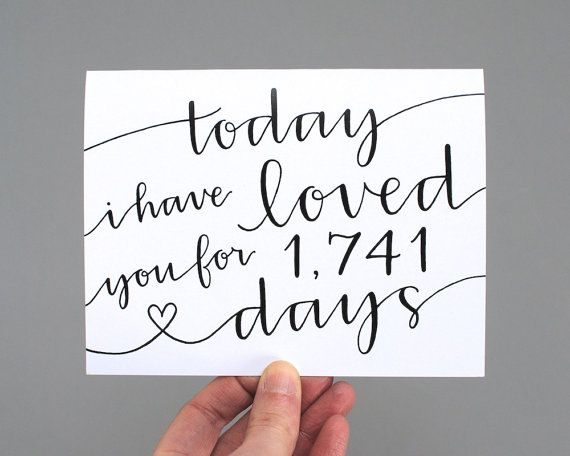 today
i have loved
you for 1,741
days